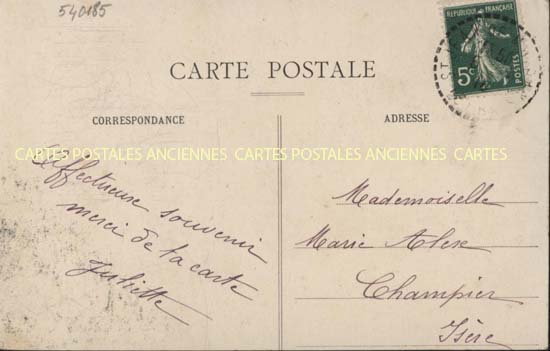 540185
RÉPUBLIQUE FRANÇAISE
5c
POSTES
CARTE POSTALE
CORRESPONDANCE
ADRESSE
CARTES POSTALES ANCIENNES CARTES POSTALES ANCIENNES CARTES
Affectueux souvenir
merci de la carte
Juliette
Mademoiselle
Marie
Champier
Isère